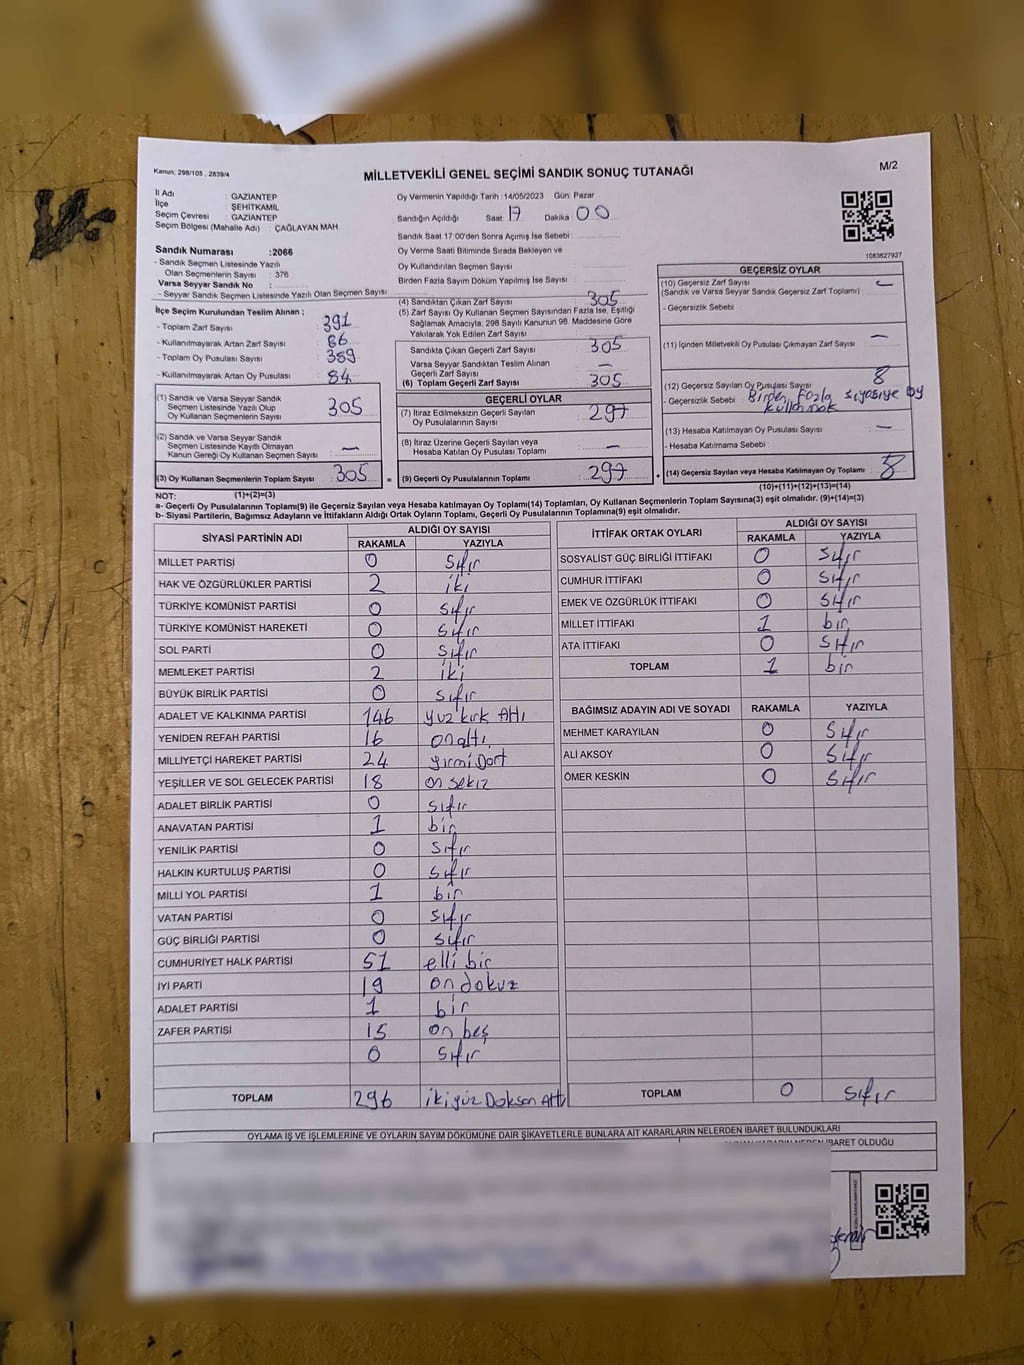 Kanun; 298/105 , 2839/4
MİLLETVEKİLİ GENEL SEÇİMİ SANDIK SONUÇ TUTANAĞI
M/2
İl Adı : GAZİANTEP
İlçe : ŞEHİTKAMİL
Seçim Çevresi : GAZİANTEP
Seçim Bölgesi (Mahalle Adı) : ÇAĞLAYAN MAH.
Oy Vermenin Yapıldığı Tarih : 14/05/2023 Gün: Pazar
Sandığın Açıldığı Saat 17 Dakika 00
Sandık Saat 17:00'den Sonra Açımış İse Sebebi :
Oy Verme Saati Bitiminde Sırada Bekleyen ve
Oy Kullandırılan Seçmen Sayısı :
Birden Fazla Sayım Döküm Yapılmış İse Sayısı :
1083627927
Sandık Numarası : 2066
- Sandık Seçmen Listesinde Yazılı
Olan Seçmenlerin Sayısı : 376
Varsa Seyyar Sandık No :
- Seyyar Sandık Seçmen Listesinde Yazılı Olan Seçmen Sayısı:
İlçe Seçim Kurulundan Teslim Alınan ;
- Toplam Zarf Sayısı : 391
- Kullanılmayarak Artan Zarf Sayısı : 86
- Toplam Oy Pusulası Sayısı : 389
- Kullanılmayarak Artan Oy Pusulası : 84
(1) Sandık ve Varsa Seyyar Sandık
Seçmen Listesinde Yazılı Olup
Oy Kullanan Seçmenlerin Sayısı : 305
(2) Sandık ve Varsa Seyyar Sandık
Seçmen Listesinde Kayıtlı Olmayan
Kanun Gereği Oy Kullanan Seçmen Sayısı : —
(3) Oy Kullanan Seçmenlerin Toplam Sayısı : 305
(1)+(2)=(3)
(4) Sandıktan Çıkan Zarf Sayısı : 305
(5) Zarf Sayısı Oy Kullanan Seçmen Sayısından Fazla İse, Eşitliği
Sağlamak Amacıyla, 298 Sayılı Kanunun 98. Maddesine Göre
Yakılarak Yok Edilen Zarf Sayısı : —
Sandıkta Çıkan Geçerli Zarf Sayısı : 305
Varsa Seyyar Sandıktan Teslim Alınan
Geçerli Zarf Sayısı : —
(6) Toplam Geçerli Zarf Sayısı : 305
GEÇERLİ OYLAR
(7) İtiraz Edilmeksizin Geçerli Sayılan
Oy Pusulalarının Sayısı : 297
(8) İtiraz Üzerine Geçerli Sayılan veya
Hesaba Katılan Oy Pusulası Toplamı : —
= (9) Geçerli Oy Pusulalarının Toplamı : 297
GEÇERSİZ OYLAR
(10) Geçersiz Zarf Sayısı : —
(Sandık ve Varsa Seyyar Sandık Geçersiz Zarf Toplamı)
- Geçersizlik Sebebi :
(11) İçinden Milletvekili Oy Pusulası Çıkmayan Zarf Sayısı : —
(12) Geçersiz Sayılan Oy Pusulası Sayısı : 8
- Geçersizlik Sebebi : Birden Fazla siyasiye oy
kullanmak
(13) Hesaba Katılmayan Oy Pusulası Sayısı : —
- Hesaba Katılmama Sebebi :
+ (14) Geçersiz Sayılan veya Hesaba Katılmayan Oy Toplamı : 8
(10)+(11)+(12)+(13)=(14)
NOT:
a- Geçerli Oy Pusulalarının Toplamı(9) ile Geçersiz Sayılan veya Hesaba katılmayan Oy Toplamı(14) Toplamları, Oy Kullanan Seçmenlerin Toplam Sayısına(3) eşit olmalıdır. (9)+(14)=(3)
b- Siyasi Partilerin, Bağımsız Adayların ve İttifakların Aldığı Ortak Oyların Toplamı, Geçerli Oy Pusulalarının Toplamına(9) eşit olmalıdır.
SİYASİ PARTİNİN ADI ALDIĞI OY SAYISI
RAKAMLA YAZIYLA
MİLLET PARTİSİ 0 Sıfır
HAK VE ÖZGÜRLÜKLER PARTİSİ 2 iki
TÜRKİYE KOMÜNİST PARTİSİ 0 sıfır
TÜRKİYE KOMÜNİST HAREKETİ 0 sıfır
SOL PARTİ 0 sıfır
MEMLEKET PARTİSİ 2 iki
BÜYÜK BİRLİK PARTİSİ 0 sıfır
ADALET VE KALKINMA PARTİSİ 146 yuz kırk Altı
YENİDEN REFAH PARTİSİ 16 onaltı
MİLLİYETÇİ HAREKET PARTİSİ 24 yirmi Dort
YEŞİLLER VE SOL GELECEK PARTİSİ 18 on sekiz
ADALET BİRLİK PARTİSİ 0 sıfır
ANAVATAN PARTİSİ 1 bir
YENİLİK PARTİSİ 0 sıfır
HALKIN KURTULUŞ PARTİSİ 0 sıfır
MİLLİ YOL PARTİSİ 1 bir
VATAN PARTİSİ 0 sıfır
GÜÇ BİRLİĞİ PARTİSİ 0 sıfır
CUMHURİYET HALK PARTİSİ 51 elli bir
İYİ PARTİ 19 on dokuz
ADALET PARTİSİ 1 bir
ZAFER PARTİSİ 15 on beş
0 sıfır
TOPLAM 296 ikiyüz Doksan Altı
İTTİFAK ORTAK OYLARI ALDIĞI OY SAYISI
RAKAMLA YAZIYLA
SOSYALİST GÜÇ BİRLİĞİ İTTİFAKI 0 Sıfır
CUMHUR İTTİFAKI 0 Sıfır
EMEK VE ÖZGÜRLÜK İTTİFAKI 0 Sıfır
MİLLET İTTİFAKI 1 bir
ATA İTTİFAKI 0 Sıfır
TOPLAM 1 bir
BAĞIMSIZ ADAYIN ADI VE SOYADI RAKAMLA YAZIYLA
MEHMET KARAYILAN 0 Sıfır
ALİ AKSOY 0 Sıfır
ÖMER KESKİN 0 Sıfır
TOPLAM 0 Sıfır
OYLAMA İŞ VE İŞLEMLERİNE VE OYLARIN SAYIM DÖKÜMÜNE DAİR ŞİKAYETLERLE BUNLARA AİT KARARLARIN NELERDEN İBARET BULUNDUKLARI
İBARET OLDUĞU